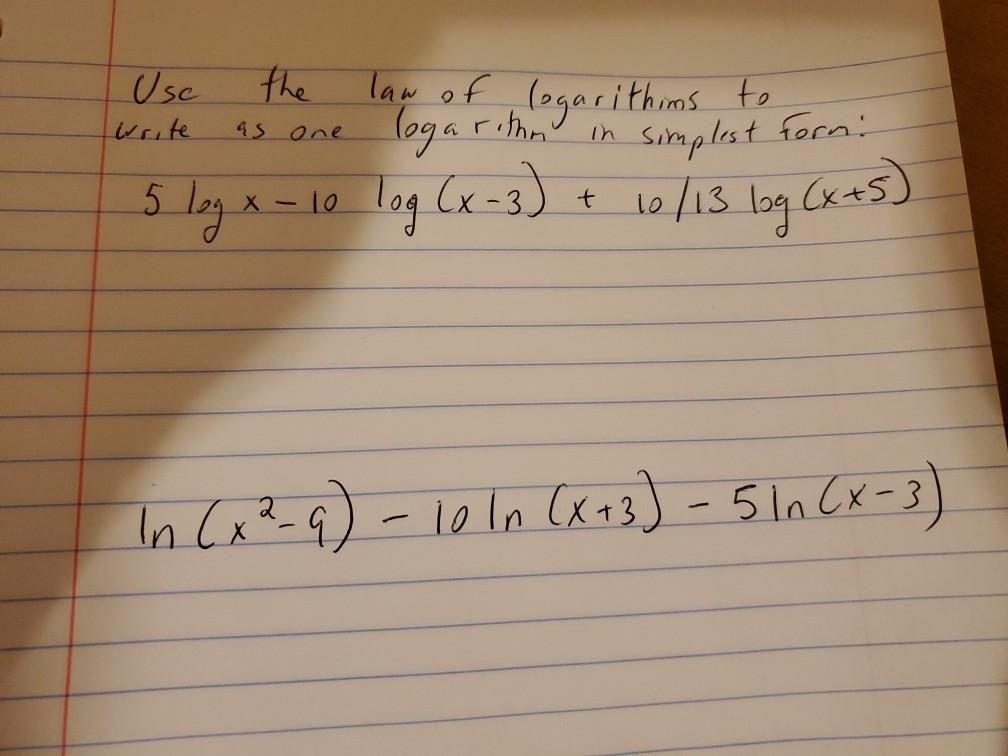 Use the law of logarithims to
write as one logarithm in simplest form:
5 log x - 10 log (x-3) + 10/13 log (x+5)
ln (x²-9) - 10 ln (x+3) - 5 ln (x-3)